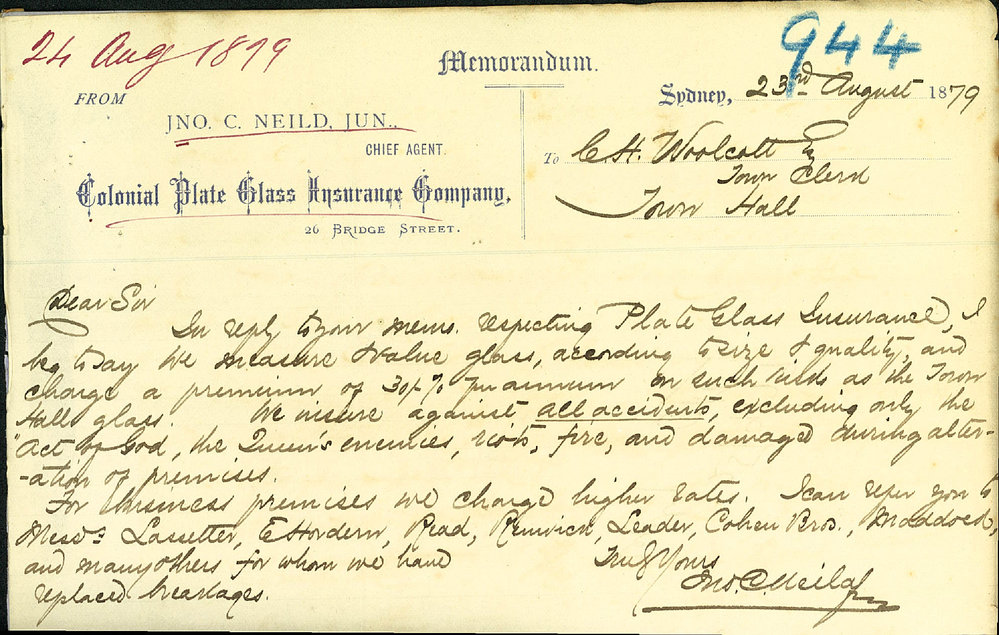 24 Aug 1879
944
Memorandum.
Sydney, 23rd August 1879
FROM
JNO. C. NEILD, JUN.,
CHIEF AGENT.
Colonial Plate Glass Insurance Company,
26 BRIDGE STREET.
To C. H. Woolcott Esq
Town Clerk
Town Hall
Dear Sir
In reply to your memo. respecting Plate Glass Insurance, I
beg to say we measure & value glass, according to size & quality, and
charge a premium of 30/- % per annum on such risks as the Town
Hall glass. We insure against all accidents, excluding only the
"Act of God, the Queen's enemies, riots, fire, and damaged during alter-
-ation of premises.
For business premises we charge higher rates. I can refer you to
Messrs Lassetter, E Hordern, Read, Renwick, Leader, Cohen Bros., Maddock,
and many others for whom we have
replaced breakages.
Truly Yours
Jno. C. Neild Jr